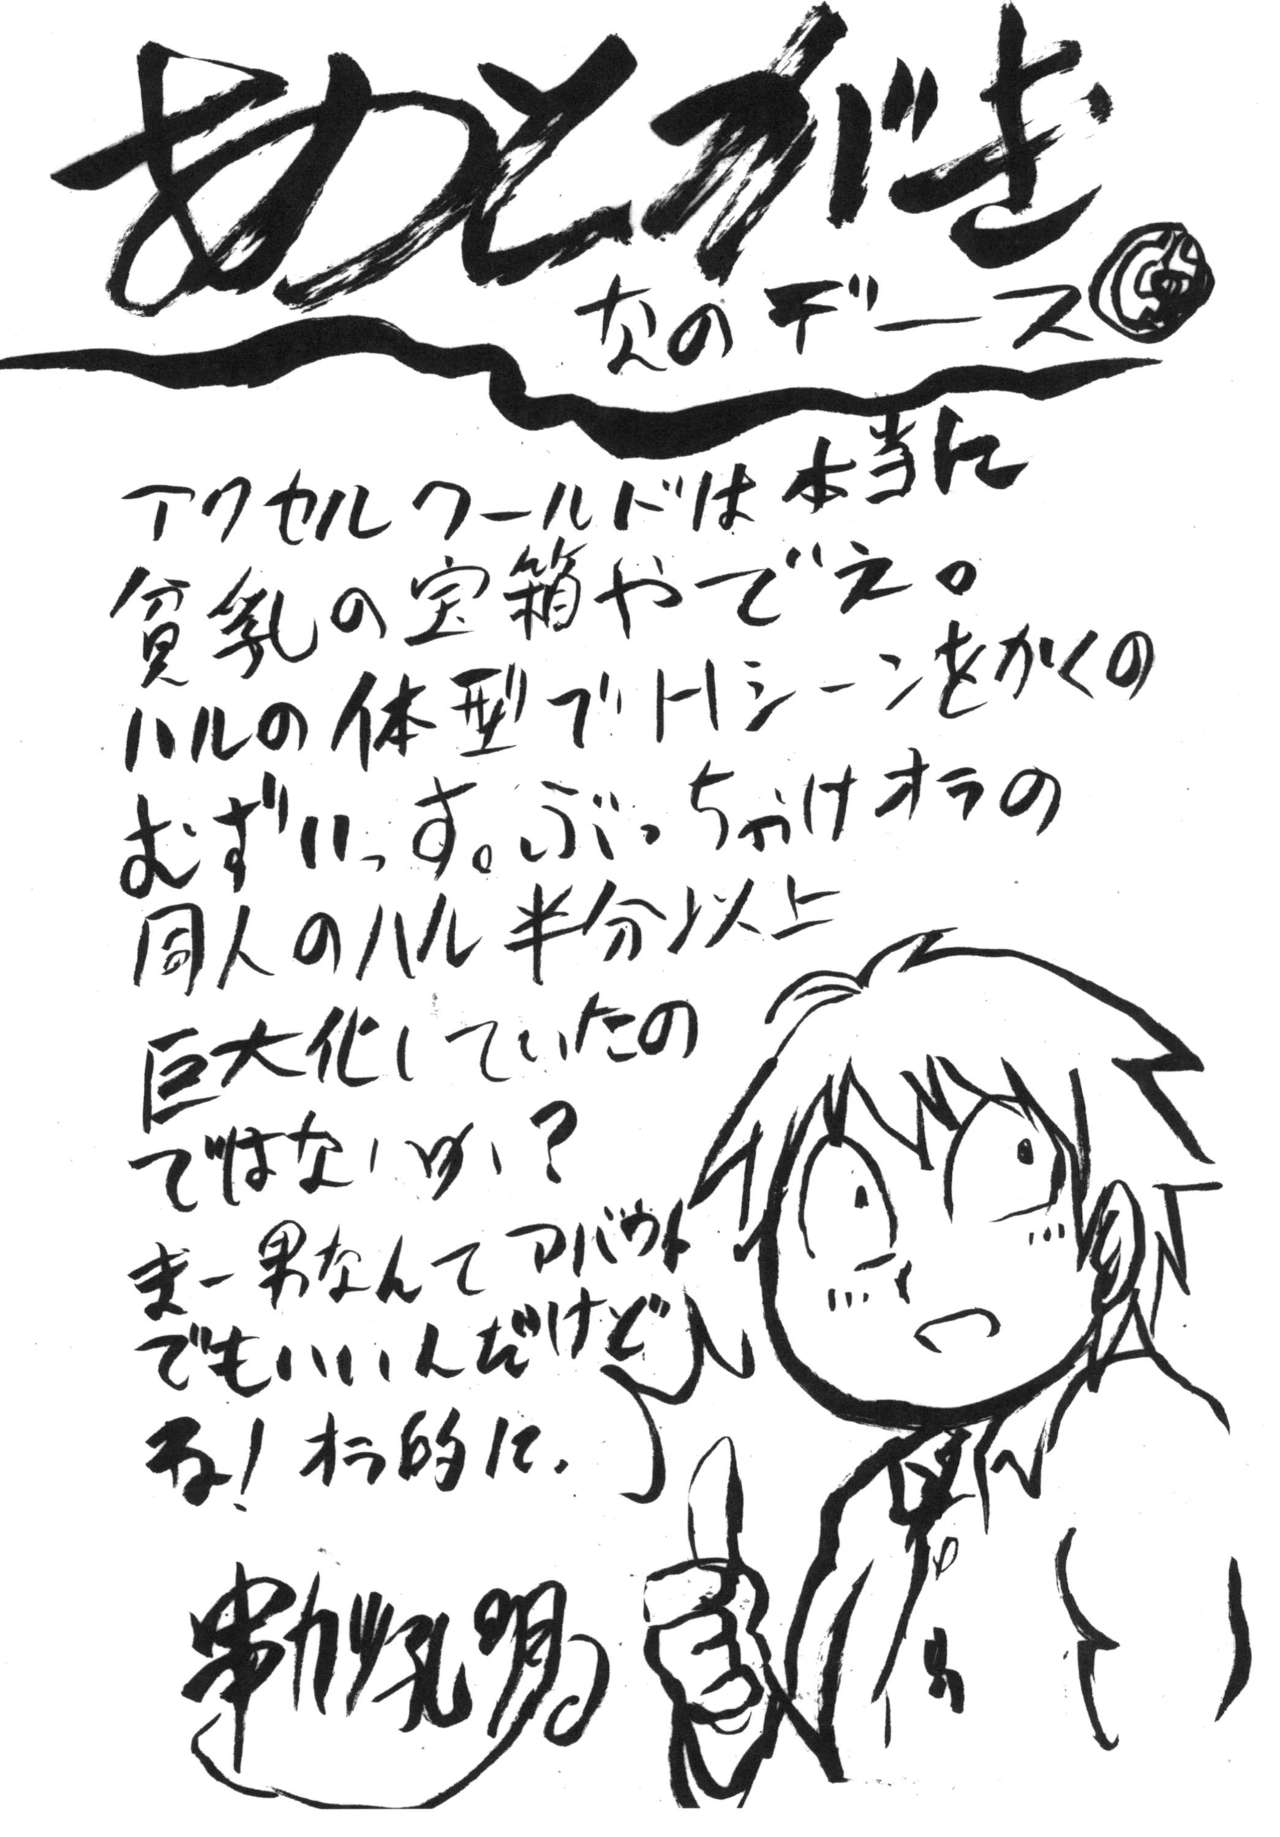 あとがき
なのデース
アクセルワールドは本当に
貧乳の宝箱やでぇ。
ハルの体型でHシーンをかくの
むずいっす。ぶっちゃけオラの
同人のハル半分以上
巨大化していたの
ではないかい?
まー男なんてアバウト
でもいいんだけど
ね!オラ的に.
串カツ孔明